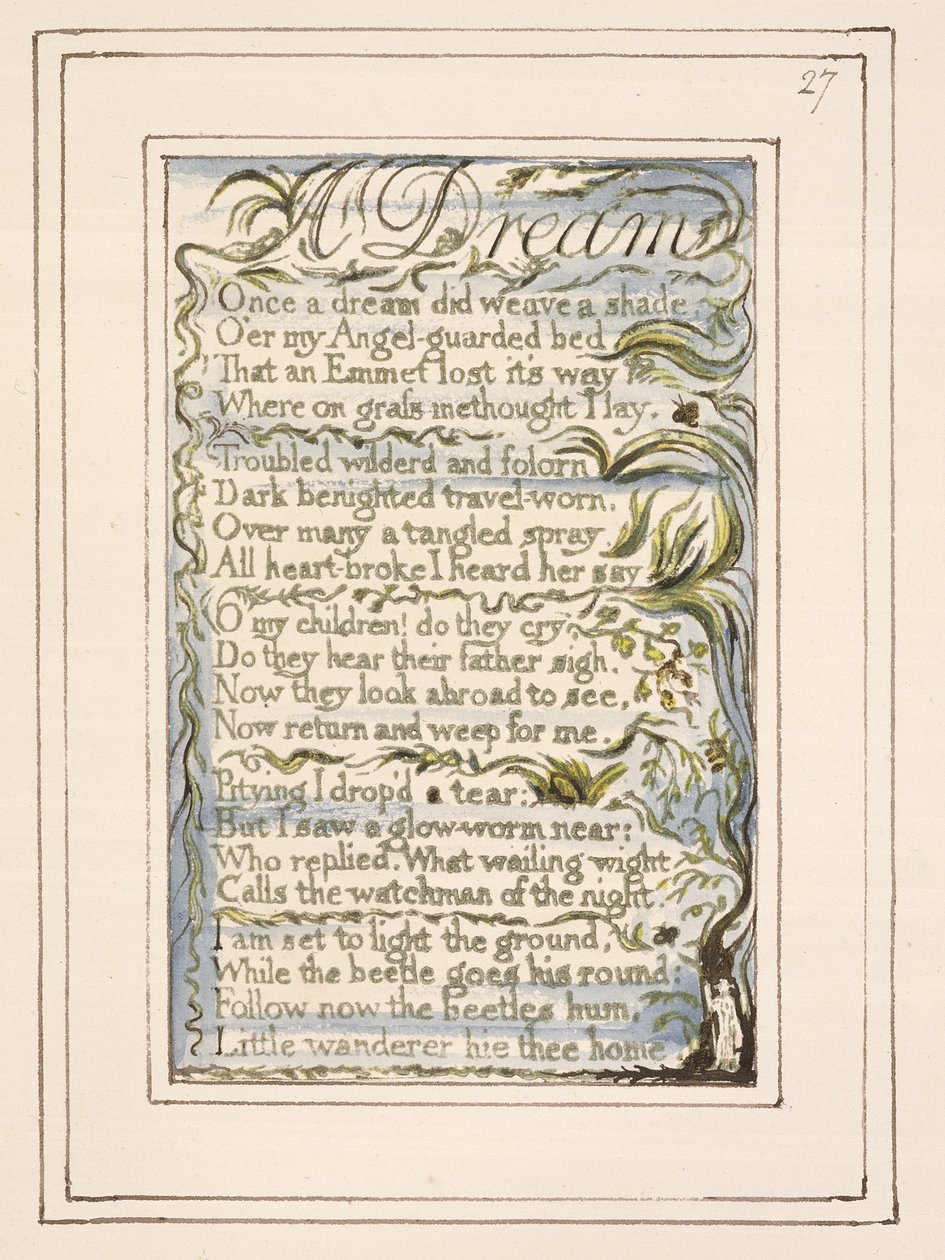 27
A Dream
Once a dream did weave a shade,
O'er my Angel-guarded bed,
That an Emmet lost it's way
Where on graſs methought I lay.
Troubled wilderd and folorn
Dark benighted travel-worn,
Over many a tangled spray,
All heart-broke I heard her say
O my children! do they cry,
Do they hear their father sigh.
Now they look abroad to see,
Now return and weep for me.
Pitying I drop'd a tear:
But I saw a glow-worm near:
Who replied. What wailing wight
Calls the watchman of the night.
I am set to light the ground,
While the beetle goes his round:
Follow now the beetles hum,
Little wanderer hie thee home